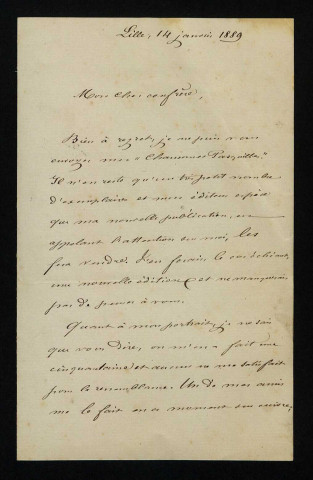 Lille, 14 janvier 1889
Mon cher confrère,
Bien à regret, je ne puis vous
envoyer mes « Chansons
Il n'en reste qu'un très petit nombre
d'exemplaires et mon éditeur espère
que ma nouvelle publication, en
appelant l'attention sur moi, les
fera vendre. J'en ferais, le cas échéant,
une nouvelle édition et ne manquerais
pas de penser à vous.
Quant à mon portrait, je ne sais
que vous dire, on m'en a fait une
cinquantaine, et aucun ne me satisfait
pour la ressemblance. Un de mes amis
me le fait en ce moment